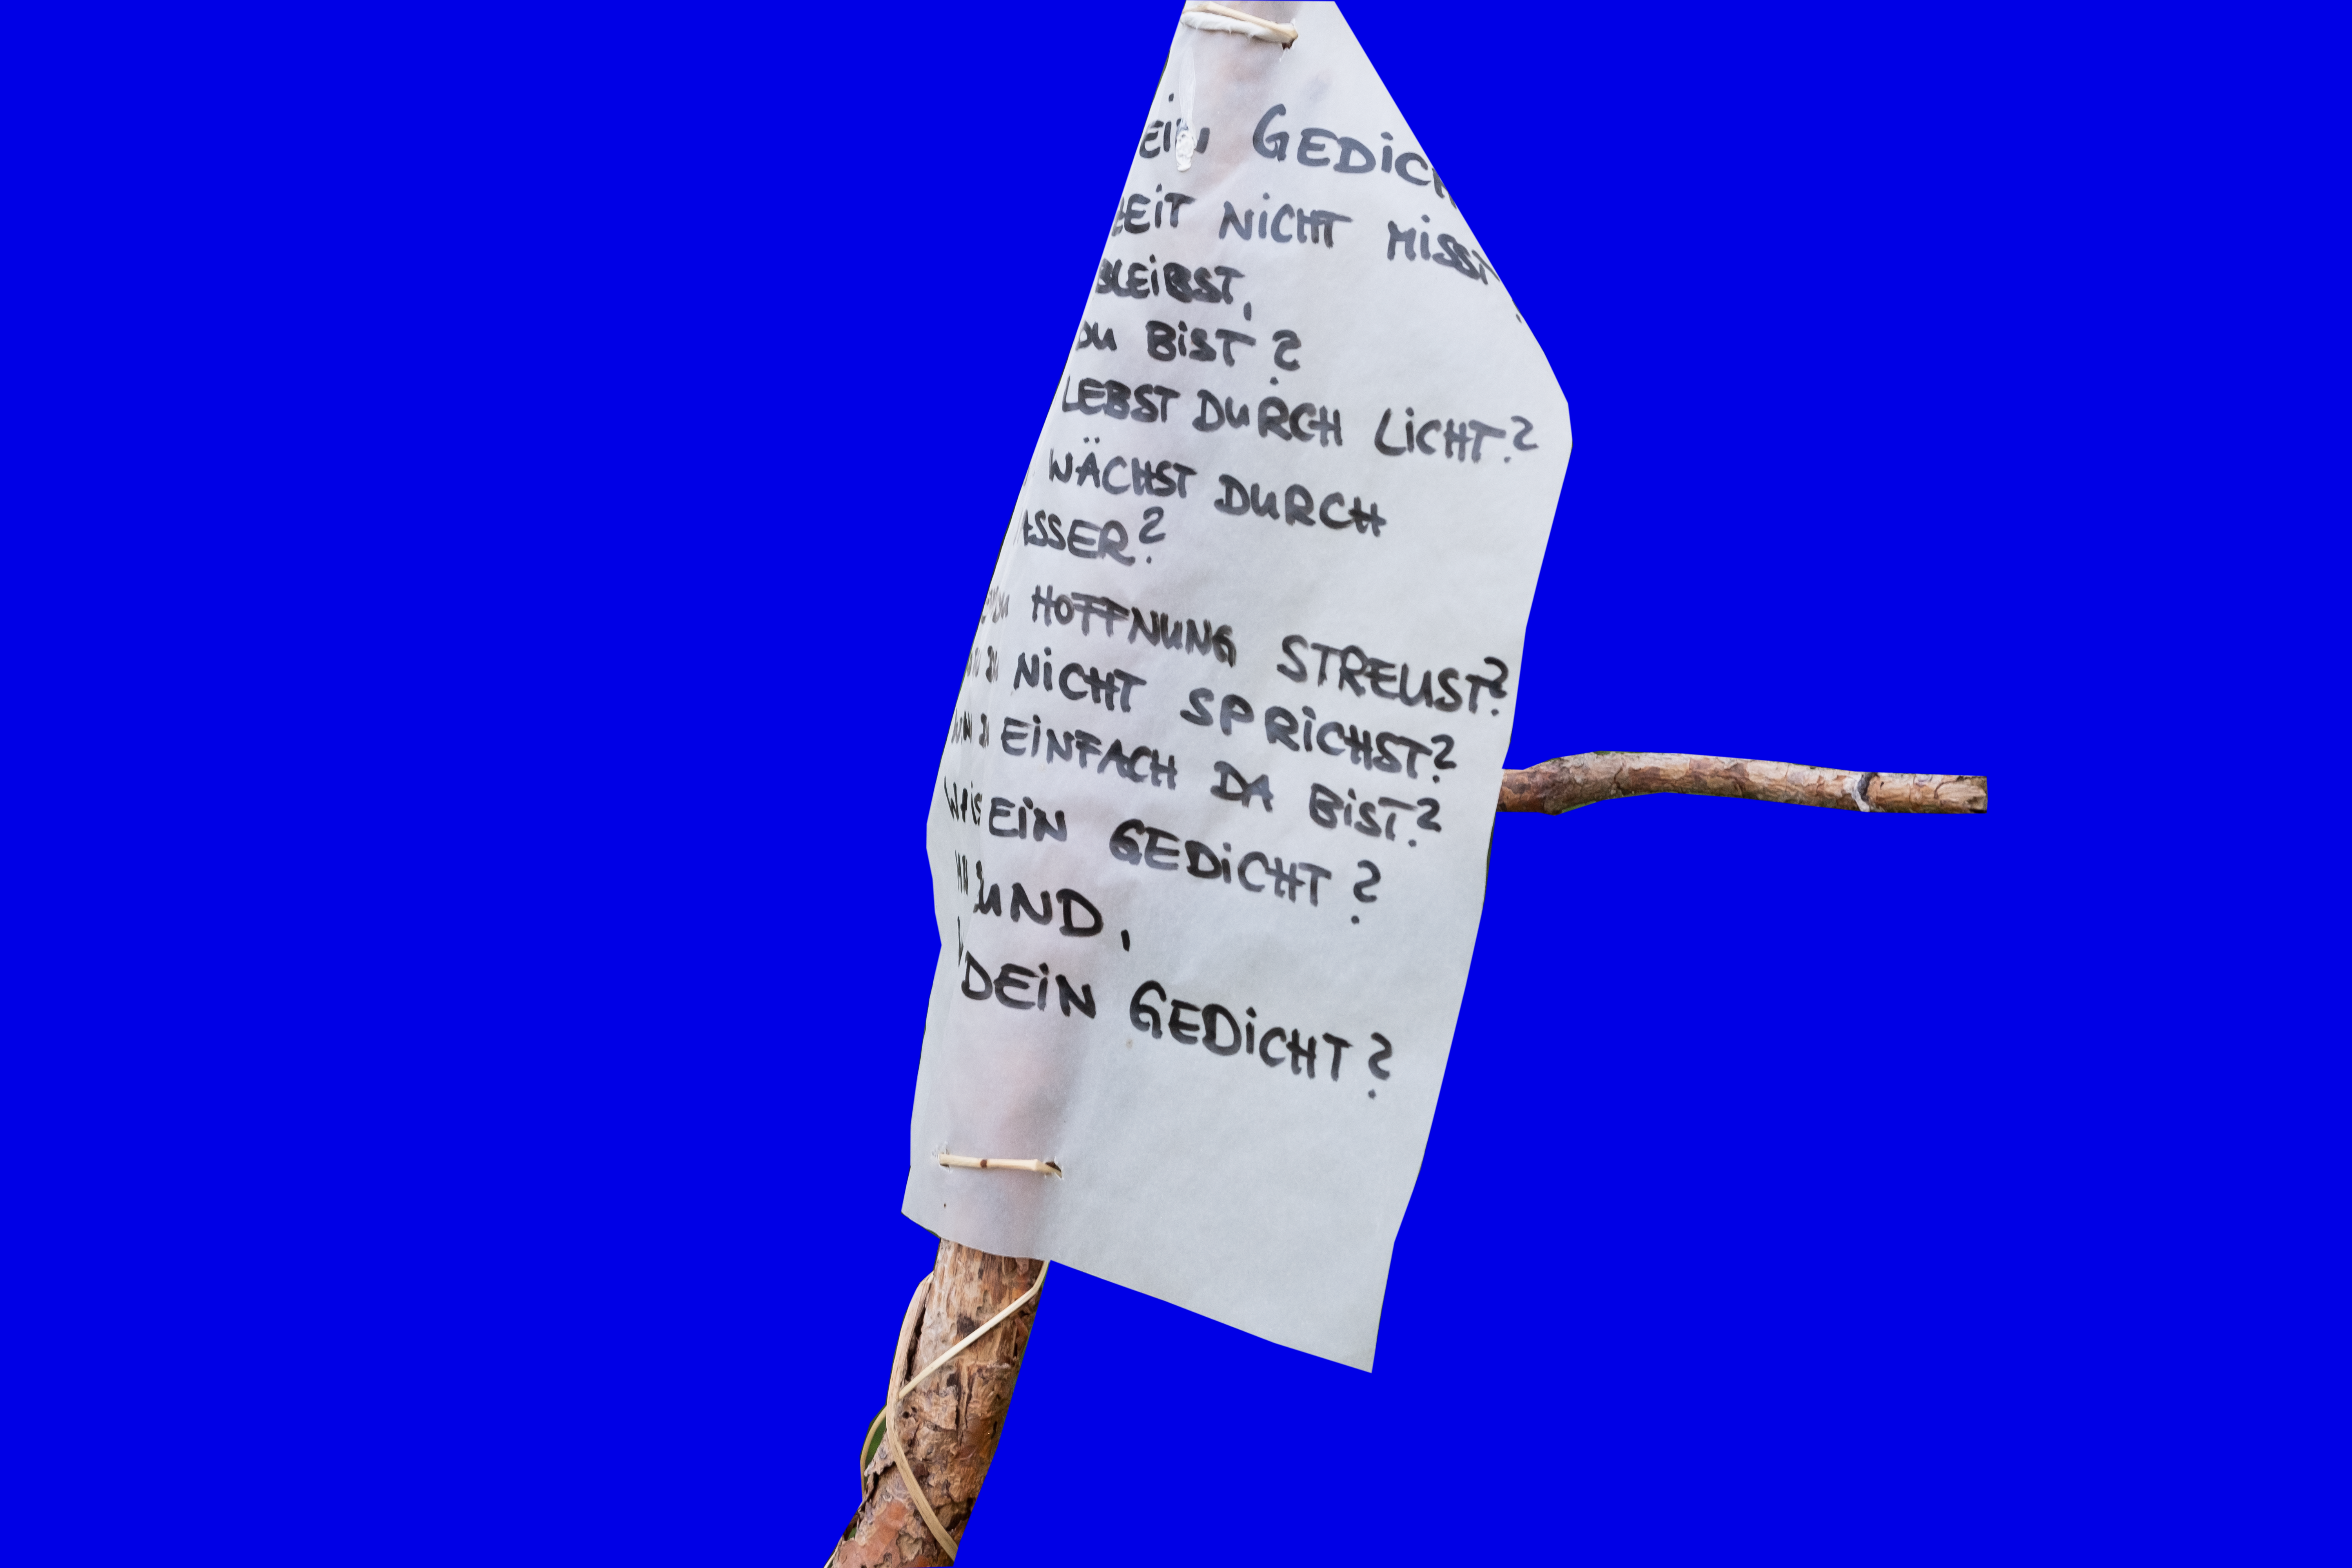 EIN GEDICH
ZEIT NICHT MISS
BLEIBST,
DU BIST?
LEBST DURCH LICHT?
WÄCHST DURCH
ASSER?
DU HOFFNUNG STREUST?
NICHT SPRICHST?
EINFACH DA BIST?
EIN GEDICHT?
UND,
DEIN GEDICHT?